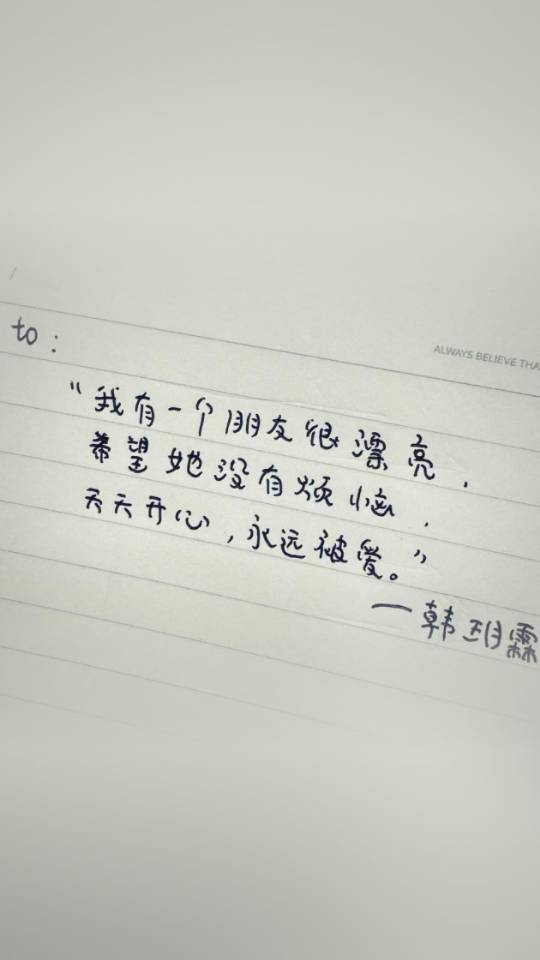 to:
ALWAYS BELIEVE THA
“我有一个朋友很漂亮，
希望她没有烦恼，
天天开心，永远被爱。”
—韩玥霖